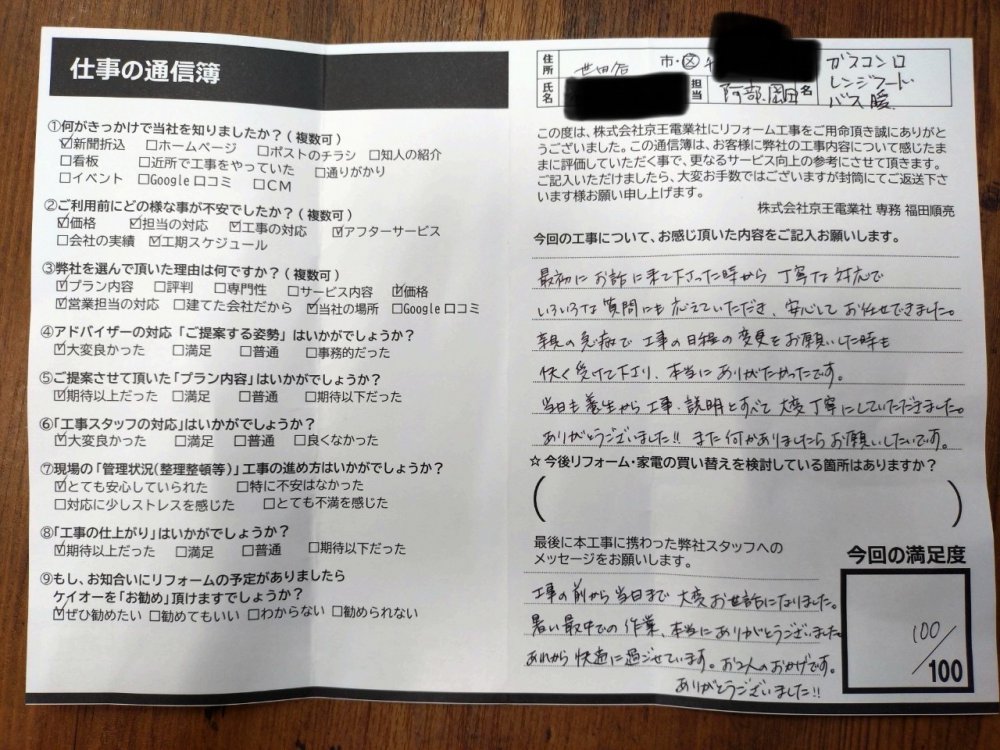 仕事の通信簿
①何がきっかけで当社を知りましたか？(複数可)
☑新聞折込 □ホームページ □ポストのチラシ □知人の紹介
□看板 □近所で工事をやっていた □通りがかり
□イベント □Google口コミ □CM
②ご利用前にどの様な事が不安でしたか？(複数可)
☑価格 ☑担当の対応 ☑工事の対応 ☑アフターサービス
□会社の実績 ☑工期スケジュール
③弊社を選んで頂いた理由は何ですか？(複数可)
☑プラン内容 □評判 □専門性 □サービス内容 ☑価格
☑営業担当の対応 □建てた会社だから ☑当社の場所 □Google口コミ
④アドバイザーの対応「ご提案する姿勢」はいかがでしょうか？
☑大変良かった □満足 □普通 □事務的だった
⑤ご提案させて頂いた「プラン内容」はいかがでしょうか？
☑期待以上だった □満足 □普通 □期待以下だった
⑥「工事スタッフの対応」はいかがでしょうか？
☑大変良かった □満足 □普通 □良くなかった
⑦現場の「管理状況(整理整頓等)」工事の進め方はいかがでしょうか？
☑とても安心していられた □特に不安はなかった
□対応に少しストレスを感じた □とても不満を感じた
⑧「工事の仕上がり」はいかがでしょうか？
☑期待以上だった □満足 □普通 □期待以下だった
⑨もし、お知合いにリフォームの予定がありましたら
ケイオーを「お勧め」頂けますでしょうか？
☑ぜひ勧めたい □勧めてもいい □わからない □勧められない
住所 世田谷 市・区
氏名 担当 阿部、園田 名 ガスコンロ
レンジフード
バス暖
この度は、株式会社京王電業社にリフォーム工事をご用命頂き誠にありがと
うございました。この通信簿は、お客様に弊社の工事内容について感じたま
まに評価していただく事で、更なるサービス向上の参考にさせて頂きます。
ご記入いただけましたら、大変お手数ではございますが封筒にてご返送下さ
います様お願い申し上げます。
株式会社京王電業社 専務 福田順亮
今回の工事について、お感じ頂いた内容をご記入お願いします。
最初にお話に来て下さった時から 丁寧な対応で
いろいろな質問にも応えていただき、安心してお任せできました。
親の急病で工事の日程の変更をお願いした時も
快く受けて下り、本当にありがたかったです。
当日も養生から工事、説明とすべて大変丁寧にしていただきました。
ありがとうございました!! また何かありましたらお願いしたいです。
☆今後リフォーム・家電の買い替えを検討している箇所はありますか？
( )
最後に本工事に携わった弊社スタッフへの
メッセージをお願いします。
工事の前から当日まで大変お世話になりました。
暑い最中での作業、本当にありがとうございました。
あれから快適に過ごせています。お2人のおかげです。
ありがとうございました!!
今回の満足度
100/
100